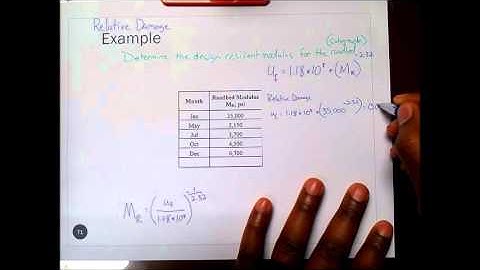 Relative Damage
Example
(subgrade)
Determine the design resilient modulus for the roadbed
u_f = 1.18*10⁸ * (M_R)^-2.32
Month Roadbed Modulus M_R, psi
Jan 35,000
May
Jul
Oct
Dec
Relative Damage
u_f = 1.18*10⁸ * (35,000^-2.32) = 0.0
M_R = (u_f / 1.18*10⁸)^-1/2.32
71